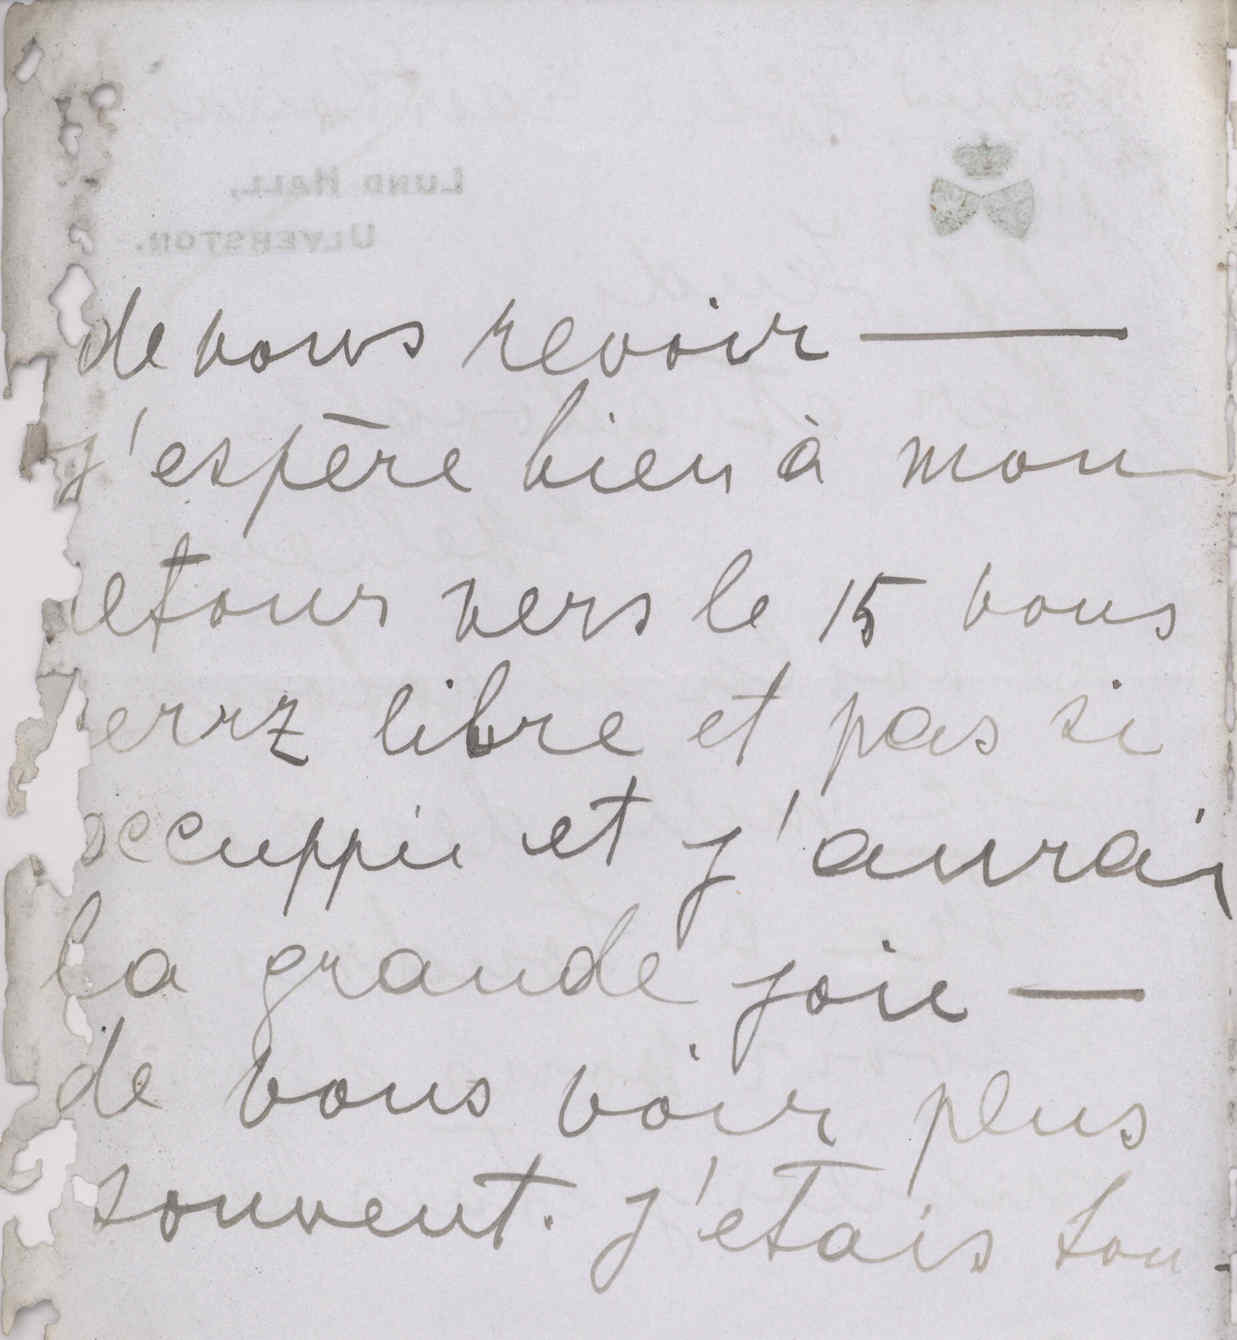 Lund Hall,
Ulverston.
de vous revoir —
j'espère bien à mon
etour vers le 15 vous
errz libre et pas si
occuppée et j'aurai
la grande joie —
de vous voir plus
souvent. j'etais tou-